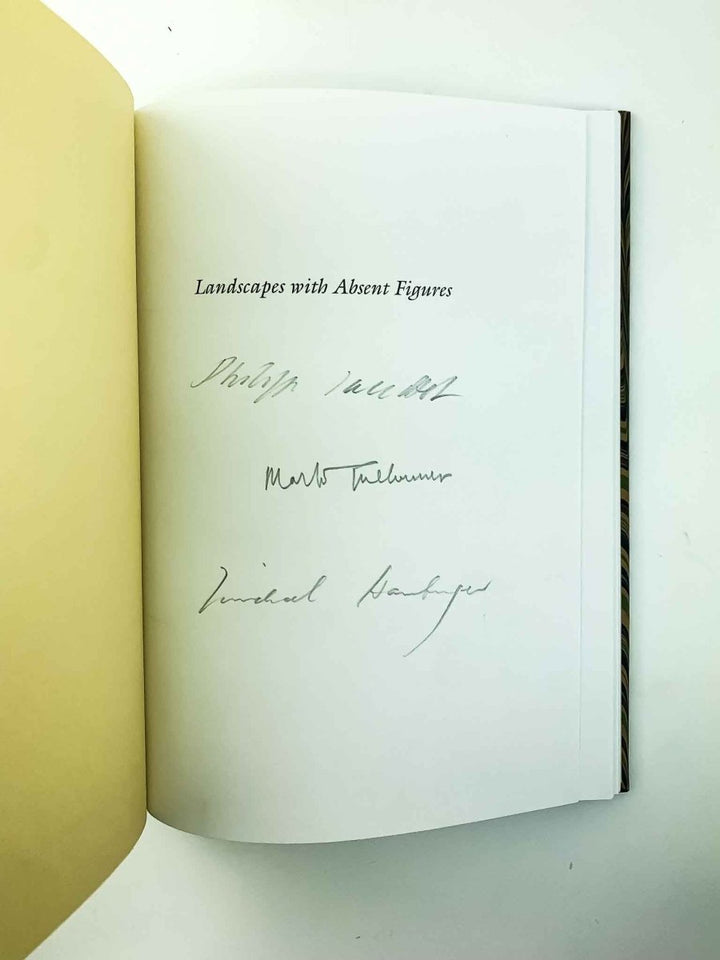 Landscapes with Absent Figures
Philippe Jaccottet
Mark Treharne
Michael Hamburger